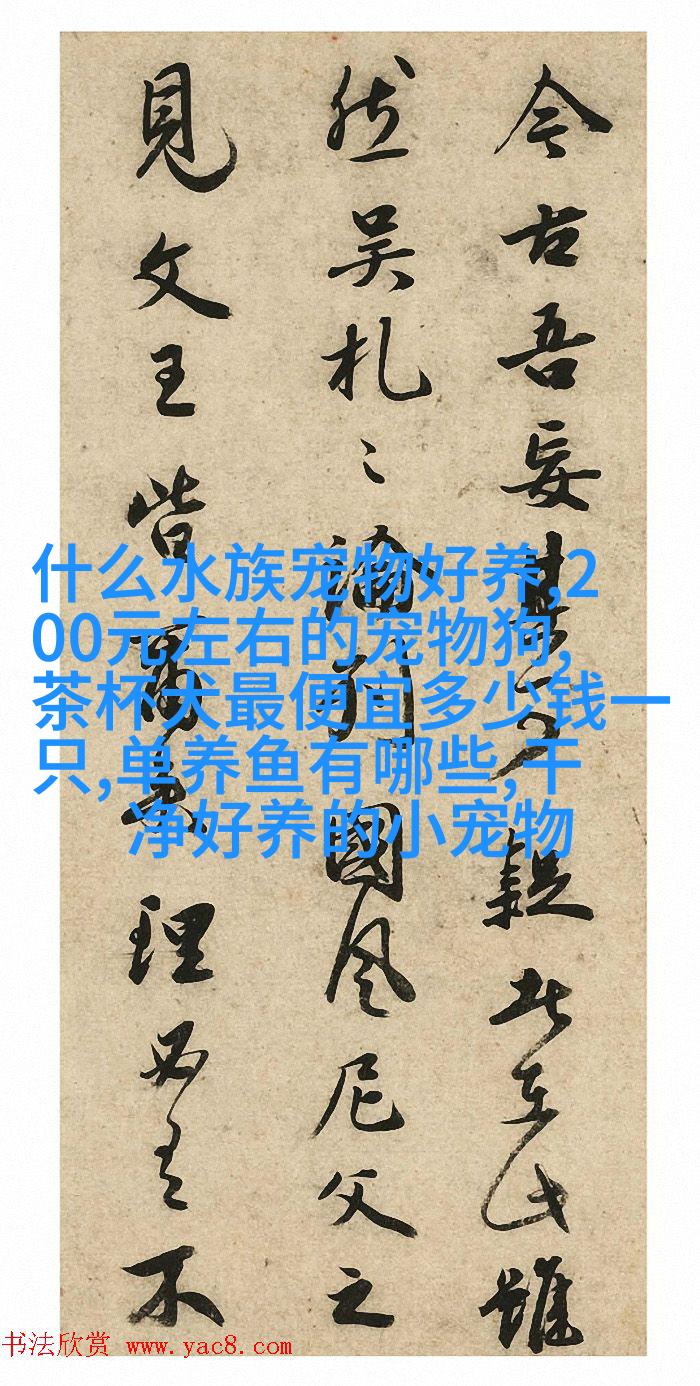 今古吾妄 此 雖
然吳札〻論列國風尼父之
見文王皆 理必有不
什么水族宠物好养,2
00元左右的宠物狗,
茶杯犬最便宜多少钱一
只,单养鱼有哪些,干
净好养的小宠物
书法欣赏 www.yac8.com